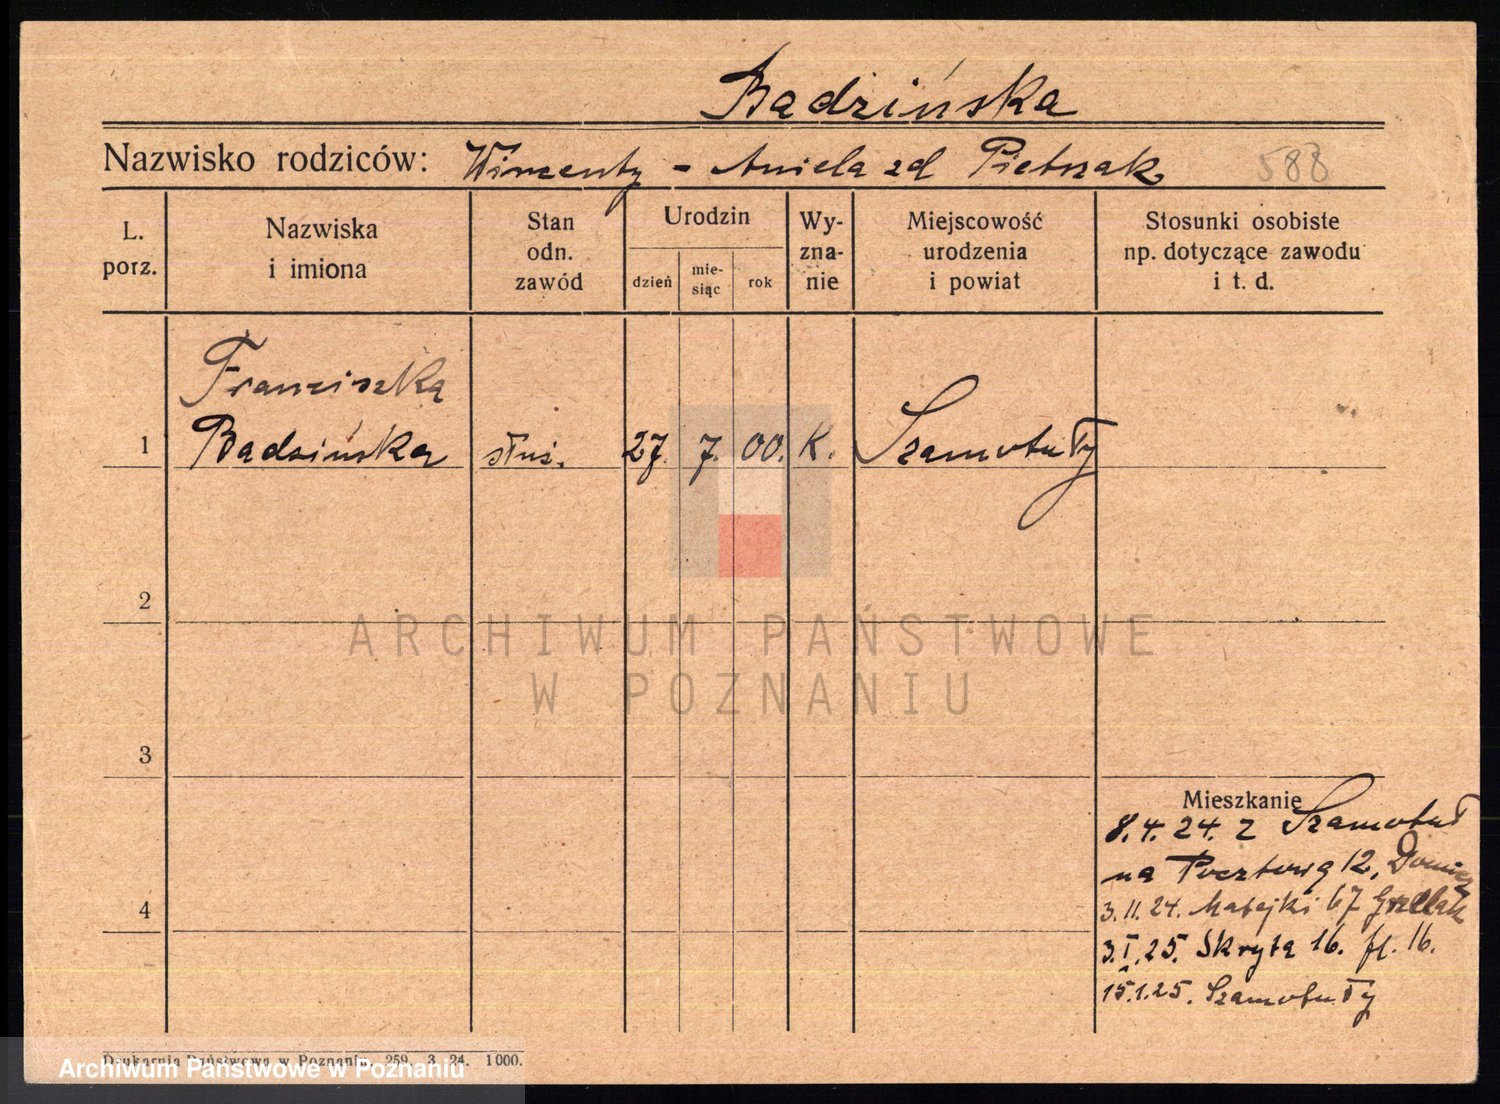 Bądzińska
Nazwisko rodziców: Wincenty - Aniela zd Pietrzak 588
L. porz.
Nazwiska i imiona
Stan odn. zawód
Urodzin
dzień
mie-siąc
rok
Wy-zna-nie
Miejscowość urodzenia i powiat
Stosunki osobiste np. dotyczące zawodu i t. d.
Franciszka
1 Bądzińska służ. 27. 7. 00. K. Szamotuły
2
ARCHIWUM PAŃSTWOWE
W POZNANIU
3
Mieszkanie
8.4.24. z Szamotuł
na Pocztową 12,
4
3.11.24. Matejki 67
3.I.25. Skryta 16. 16.
15.1.25. Szamotuły
Drukarnia Państwowa w Poznaniu. 259. 3. 24. 1000.
Archiwum Państwowe w Poznaniu